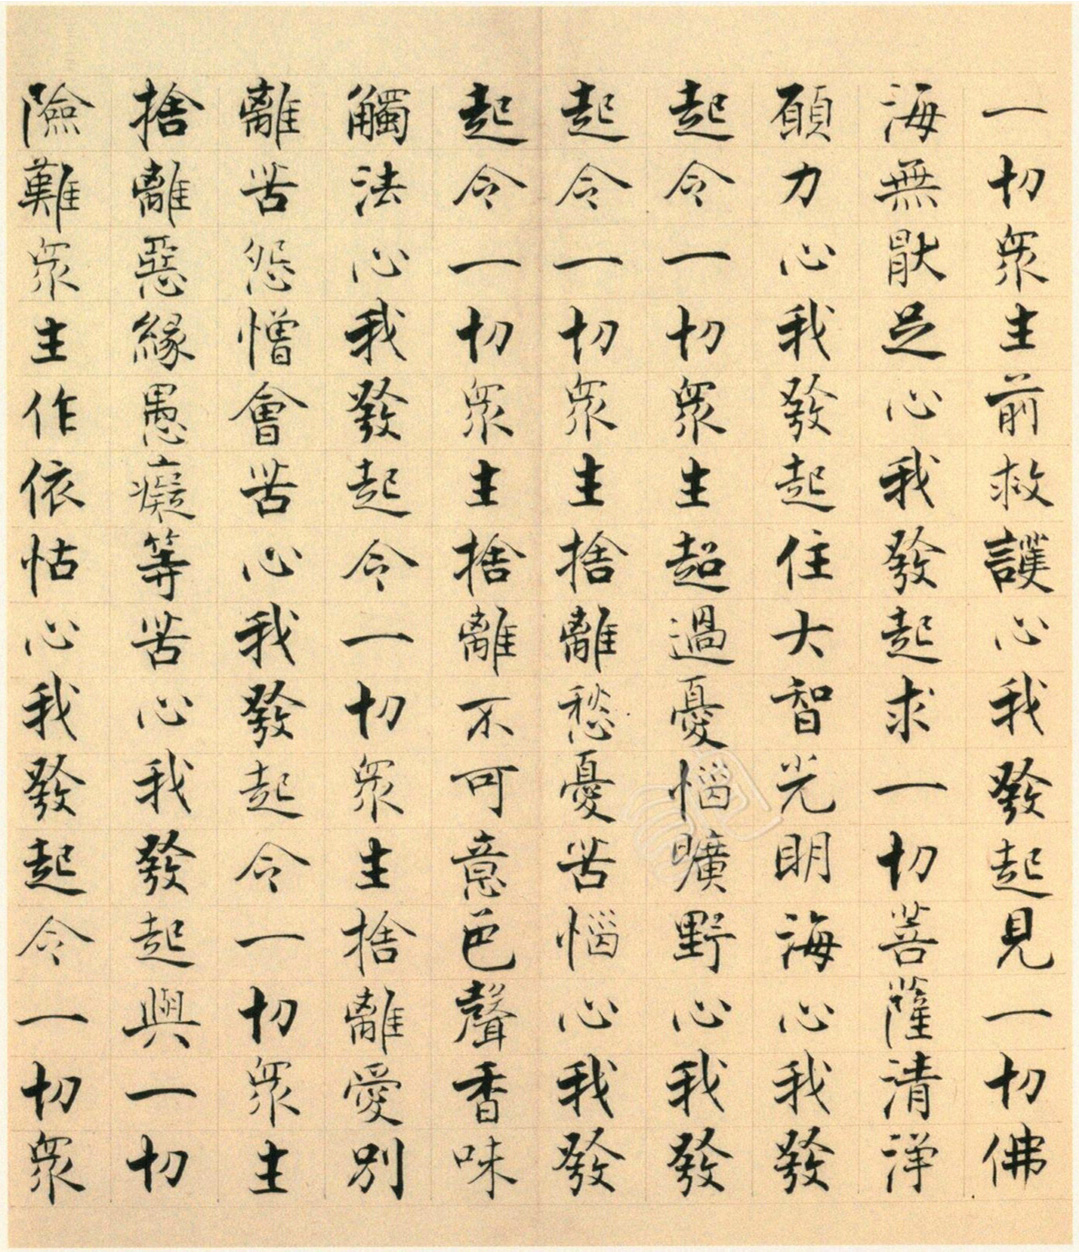 一切衆生前救護心我發起見一切佛
海無猒足心我發起求一切菩薩清淨
願力心我發起住大智光明海心我發
起令一切衆生超過憂惱曠野心我發
起令一切衆生捨離愁憂苦惱心我發
起令一切衆生捨離不可意色聲香味
觸法心我發起令一切衆生捨離愛別
離苦怨憎會苦心我發起令一切衆生
捨離惡緣愚癡等苦心我發起與一切
險難衆生作依怙心我發起令一切衆